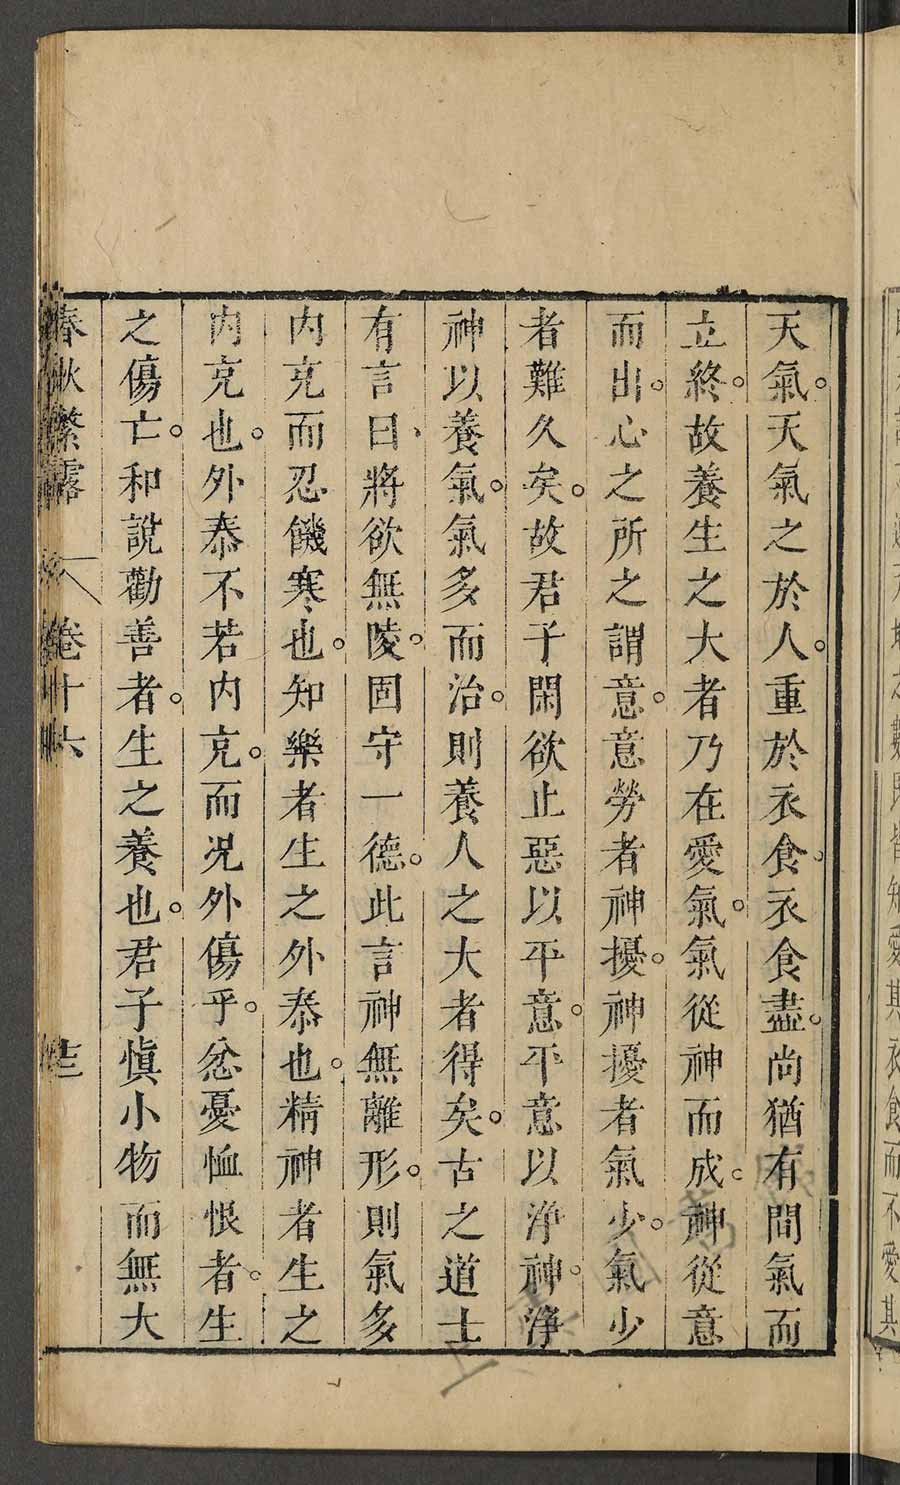 天氣。天氣之於人。重於衣食。衣食盡。尚猶有間氣而
立終。故養生之大者乃在愛氣。氣從神而成。神從意
而出。心之所之謂意。意勞者神擾。神擾者氣少。氣少
者難久矣。故君子閑欲止惡以平意。平意以淨神。淨
神以養氣。氣多而治。則養人之大者得矣。古之道士
有言曰、將欲無陵。固守一德。此言神無離形。則氣多
內充而忍饑寒也。知樂者生之外泰也。精神者生之
內充也。外泰不若內充。而況外傷乎。忿憂恤恨者。生
之傷亡。和說勸善者。生之養也。君子慎小物而無大
春秋繁露 卷十六 十三
數 皆知愛其衣食而不愛其